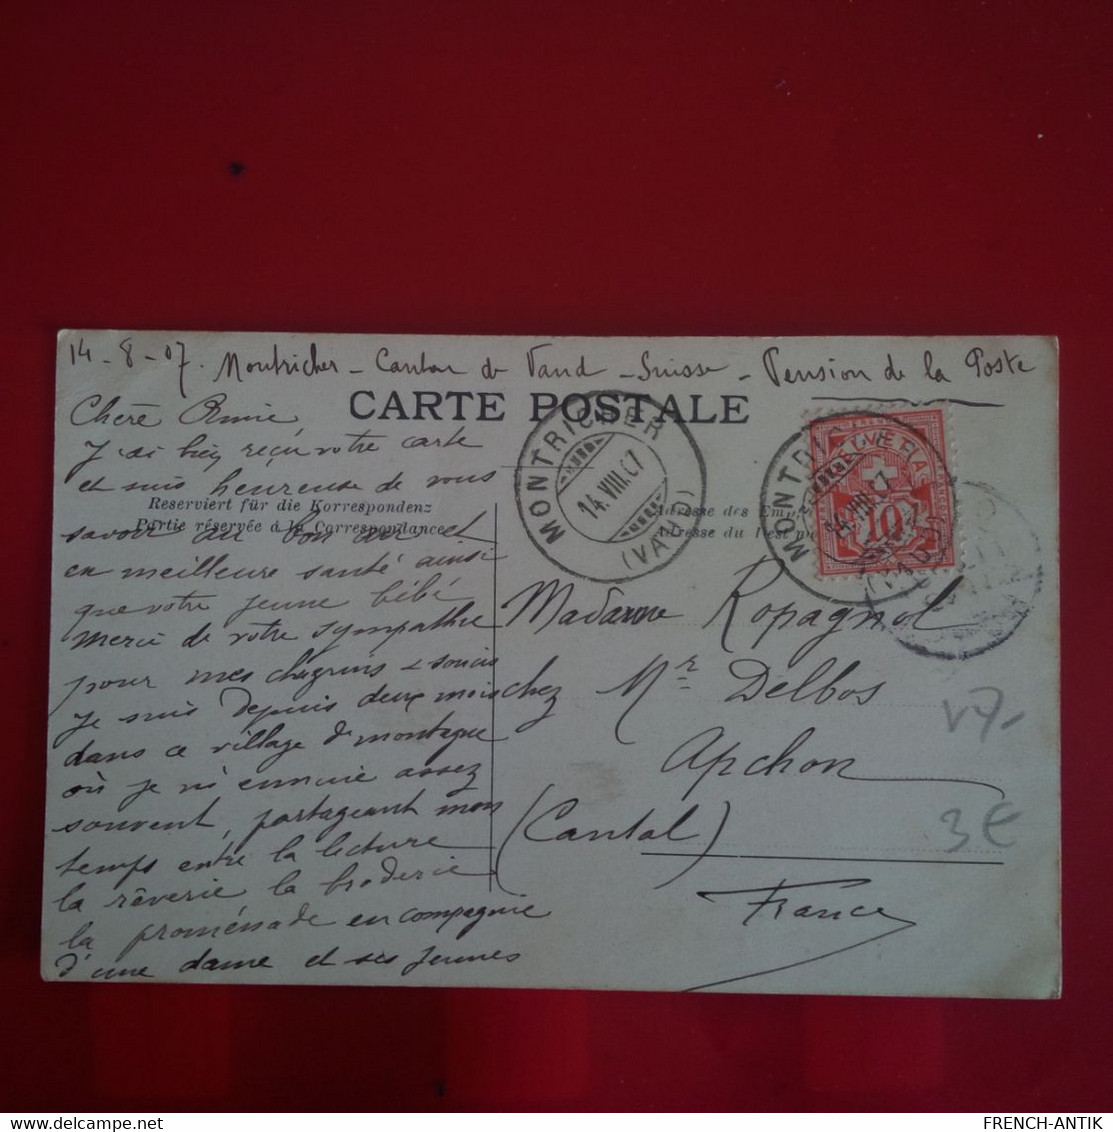 14-8-07. Montricher - Canton de Vaud - Suisse - Pension de la Poste
CARTE POSTALE
Chère Amie,
J'ai bien reçu votre carte
et suis heureuse de vous
Reserviert für die Korrespondenz
Partie réservée à la Correspondance
savoir au bon air et
en meilleure santé ainsi
que votre jeune bébé
Merci de votre sympathie
pour mes chagrins & soucis
Je suis depuis deux mois
dans ce village de montagne
où je m'ennuie assez
souvent, partageant mon
temps entre la lecture
la rêverie la broderie
la promenade en compagnie
d'une dame et ses jeunes
MONTRICHER
14.VIII.07
(VAUD)
HELVETIA
10
MONTR
14.VIII.07
Adresse des Em
Adresse du Dest
Madame Ropagnol
chez Mr Delbos
Apchon
(Cantal)
France
V7-
3€
FRENCH-ANTIK